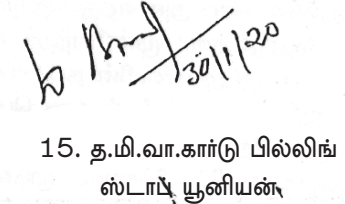 30/1/20
15. த.மி.வா.கார்டு பில்லிங்
ஸ்டாப் யூனியன்